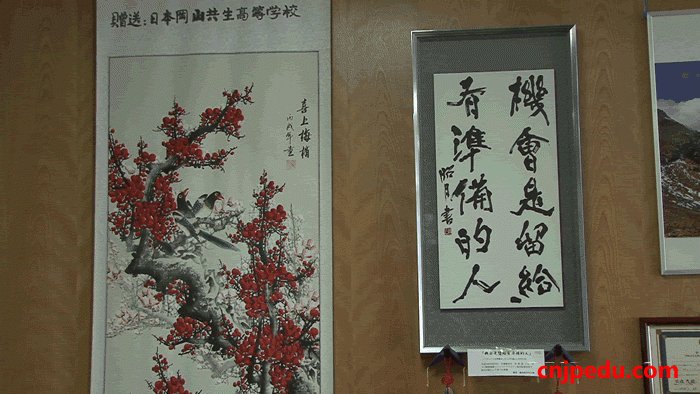 贈送:日本岡山共生高等学校
喜上梅梢
丙戌年畫
機會是留給
有準備的人
昭月書
cnjpedu.com